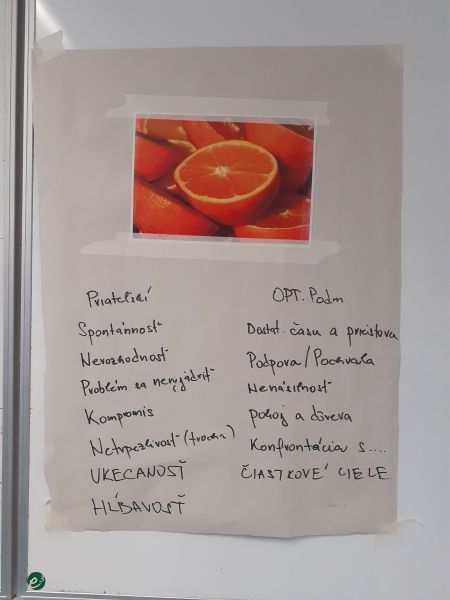 Priateľskí
Spontánnosť
Nerozhodnosť
Problém sa nevyjádriť
Kompromis
Netrpezlivosť (trocha)
UKECANOSŤ
HĹBAVOSŤ
OPT. Podm.
Dostat. času a priestova
Podpova/Pochvala
Nenásilnosť
pokoj a dôveva
Konfrontácia s....
ČIASTKOVÉ CIELE